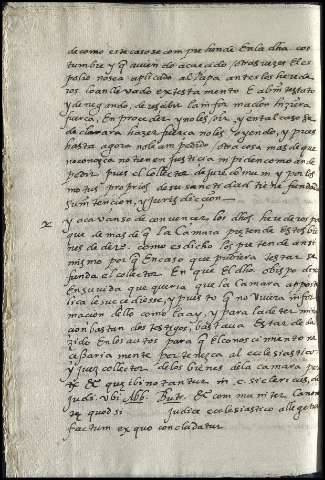 de como este caso se comprehende En la dha cos
tumbre y q aviendo acaecido otras vezes El ex
polio no sea aplicado al Papa antes los herede
ros loan llevado ex testamento E ab intestato
y denegando, de resabir la informacion hiziera
fuerça, En proceder y no les oir, y en tal caso se
declamara hazer fuerça no les oyendo, y pues
hasta agora no le an pedido otra cosa mas de que
reconozca no tienen justicia ni piden como an de
pedir pues el collector de jure comum y por los
motus proprios de su sanctidad tiene fundada
su intencion, y jurisdiccion
y acavanso de convencer los dhos herederos por
que de mas de q la Camara pretende estos bie
nes de dero. como es dicho los pretende ansi
mismo por q En caso que pudiera testar se
funda el colector En que El dho obispo dixo
En su vida que queria que la camara appos
lica le sucediesse, y puesto q no Vuiera infor
macion dello como la ay, y para la determina
cion bastan dos testigos, bastava Estar deda
zido En los autos para q El conoscimiento ne
cessariamente pertenesca al ecclesiastico
y juez collector de los bienes de la camara
que ibi notantur in c. si clericus, de
judi. vbi Abb. Butr. communiter
quod si judice ecclesiastico allegatur
factum ex quo